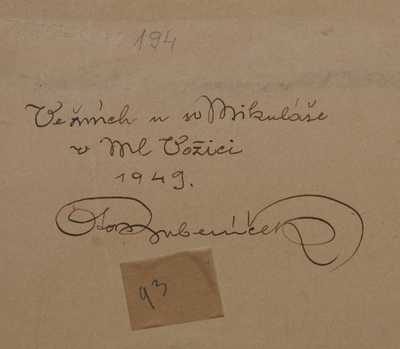 194
Ve žních u sv Mikuláše
v Ml Vožici
1949.
Ota Bubeníček
93